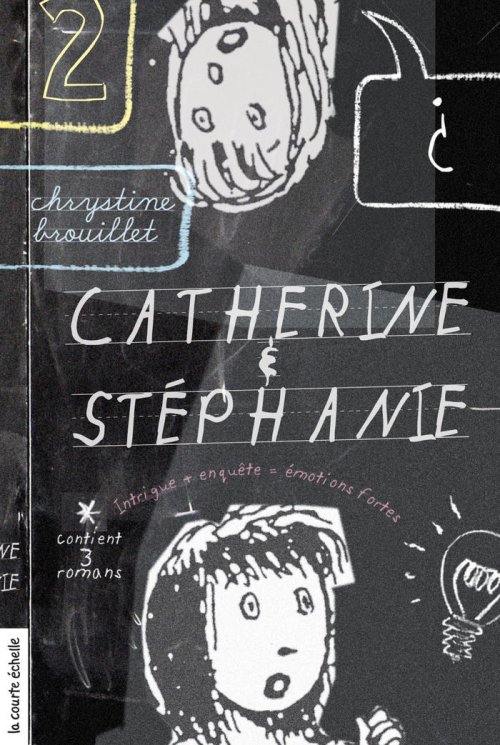 2
?
chrystine
brouillet
CATHERINE
&
STÉPHANIE
Intrigue + enquête = émotions fortes
*
contient
3
romans
NE
IE
la courte échelle